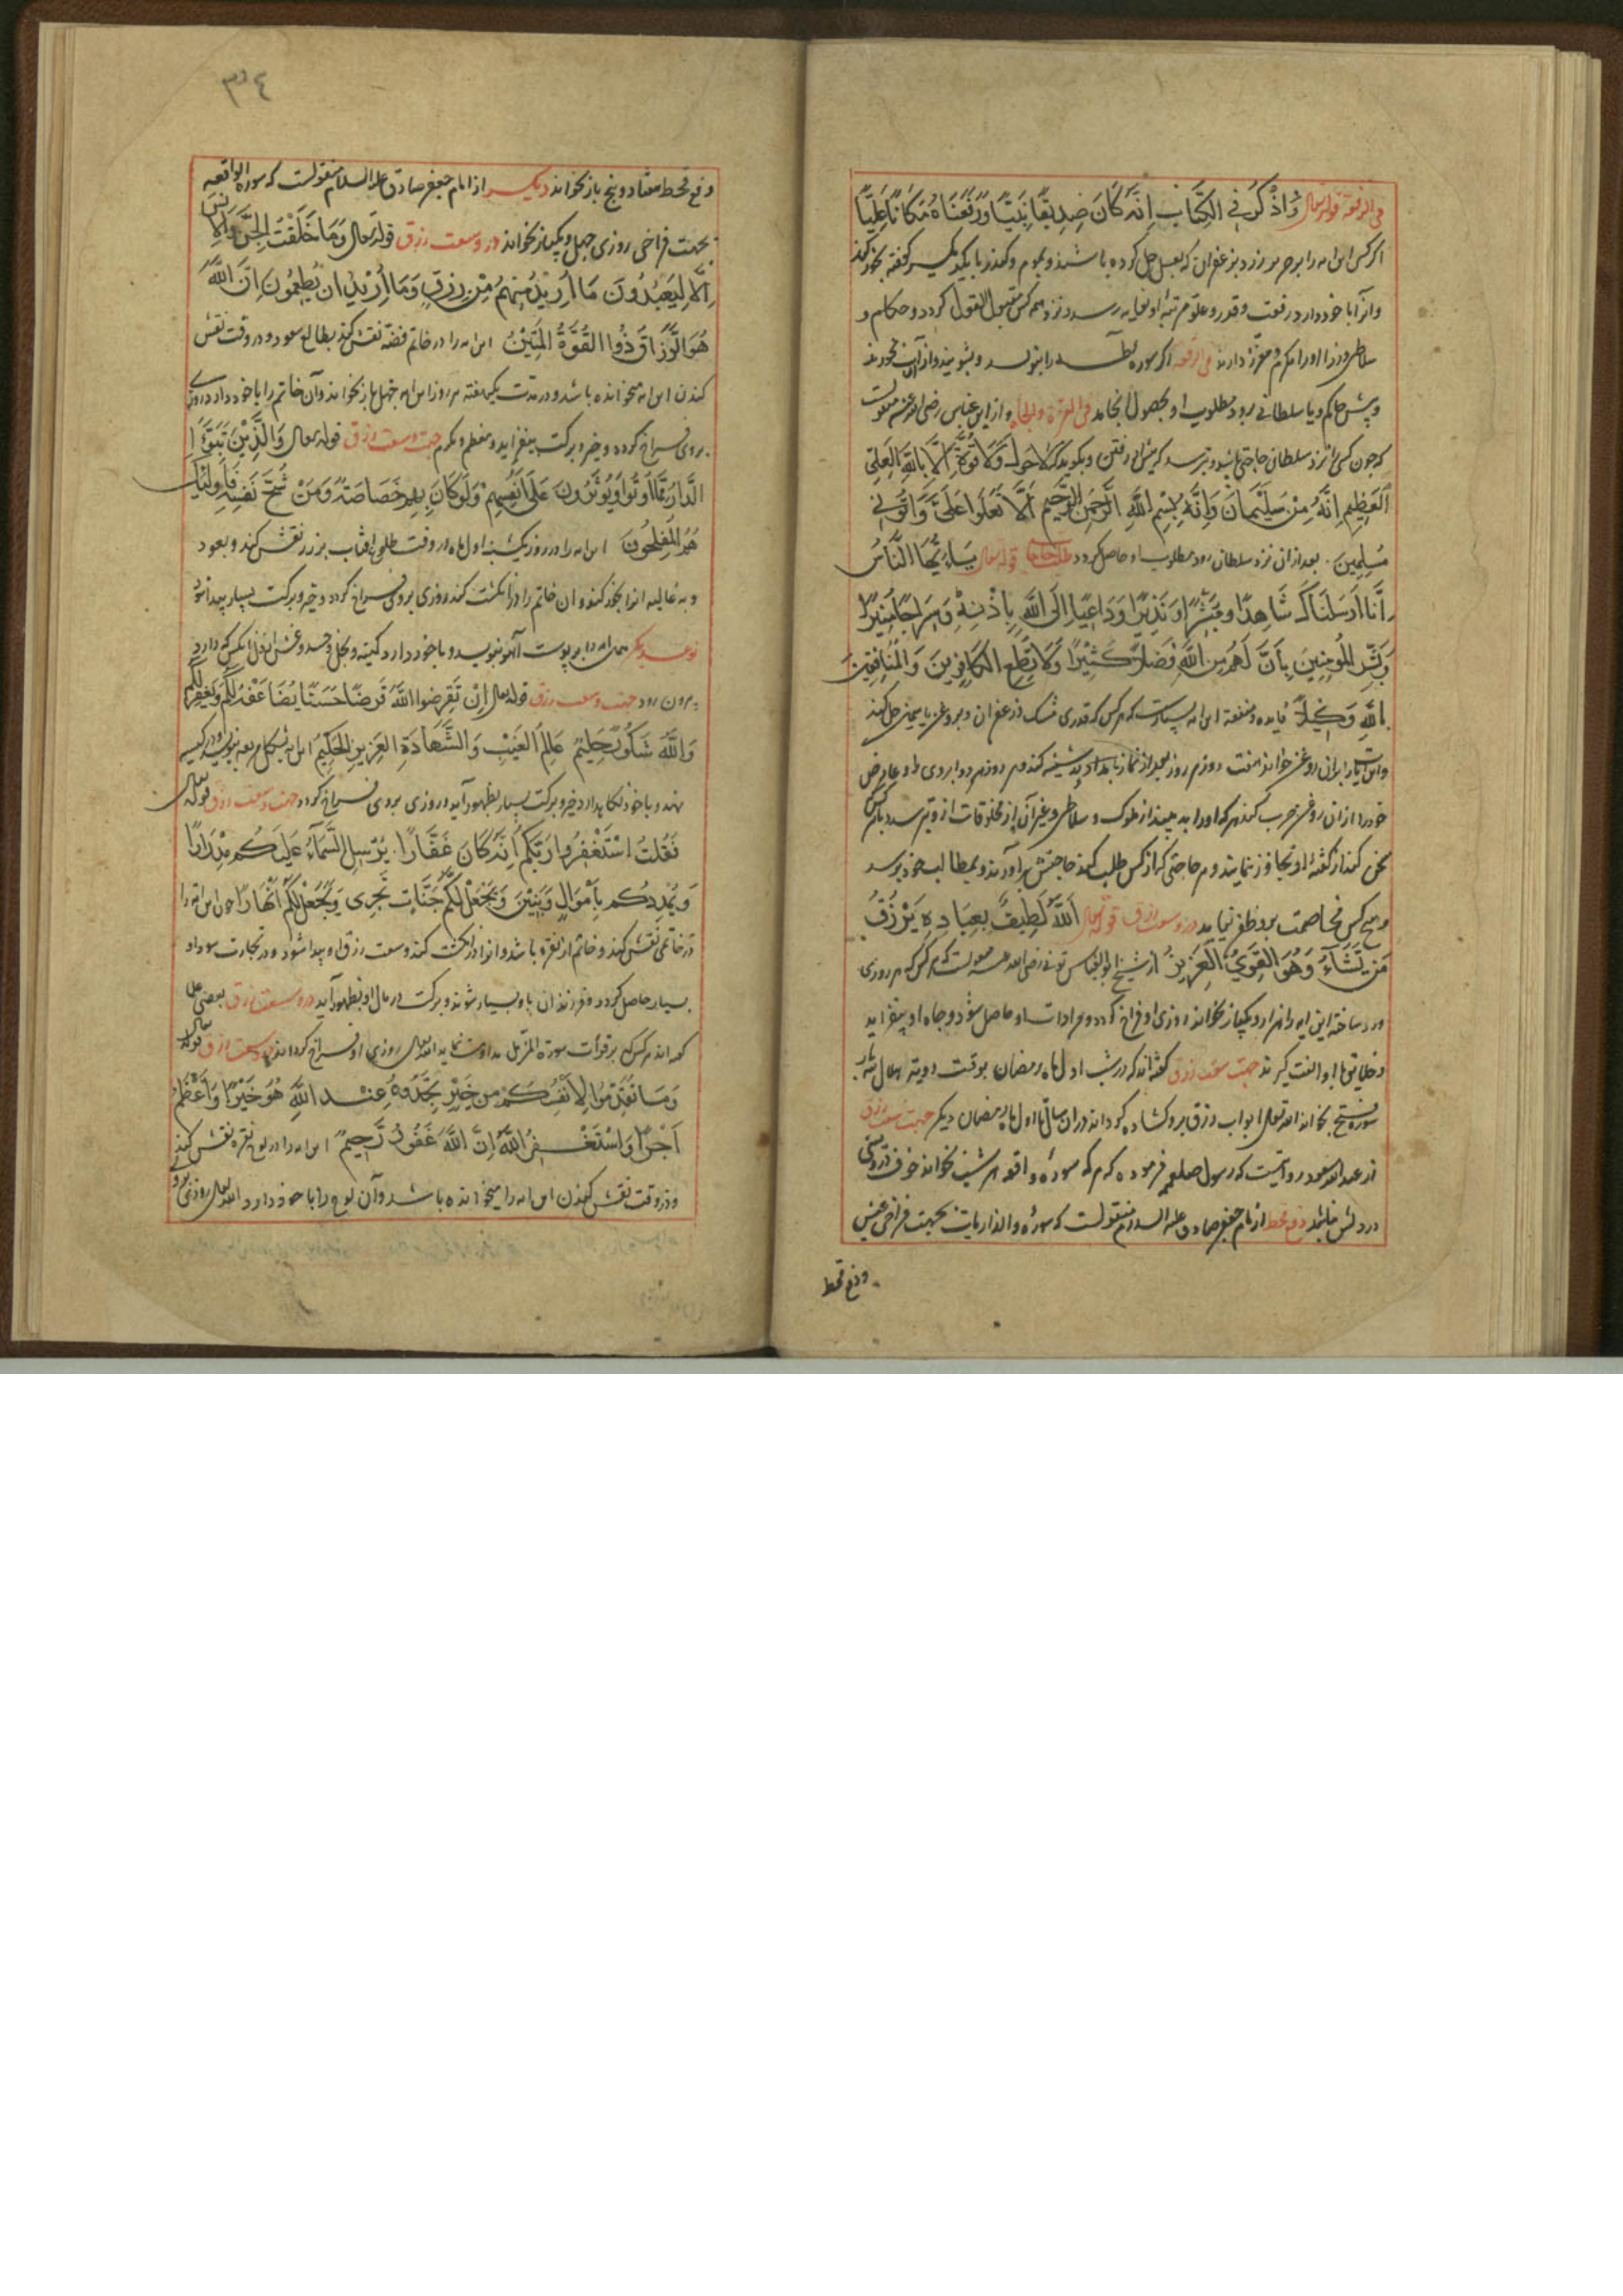 فی الرفعة قوله تعالی وَاذْكُرْ فِي الْكِتَابِ اِنَّهُ كَانَ صِدِّيقًا نَبِيًّا وَرَفَعْنَاهُ مَكَانًا عَلِيًّا
اکر کسی این ایه را بر حریر زرد بزعفران که بعسل حل کرده باشند و بموم و کندر
وانرا با خود دارد رفعت و قدر و علو مرتبه او بغایه رسد و نزد همه کس مقبول القول کردد و حکام و
سلاطین و وزرا او را مکرم و معزز دارند فی الرفعه اکر سوره را بنویسد و بشویند وازان آب بخورند
و پیش حاکم و یا سلطانی برود مطلوب او بحصول انجامد فی العزة والجاه و از ابن عباس رضی الله عنهم منقولست
که چون کسی را نزد سلطان حاجتی باشد و ترسد که پیش او رفتن و بکوید که لا حول وَلَا قُوَّةَ اِلَّا بِاللهِ الْعَلِيِّ
الْعَظِيمِ اِنَّهُ مِنْ سُلَيْمَانَ وَاِنَّهُ بِسْمِ اللهِ الرَّحْمَنِ الرَّحِيمِ اَلَّا تَعْلُوا عَلَيَّ وَاْتُونِي
مُسْلِمِينَ . بعد ازان نزد سلطان رود مطلوب او حاصل کردد طلب حاجات قوله تعالی يَاءَيُّهَا النَّاسُ
اِنَّا اَرْسَلْنَاكَ شَاهِدًا وَمُبَشِّرًا وَنَذِيرًا وَدَاعِيًا اِلَى اللهِ بِاِذْنِهِ وَسِرَاجًا مُنِيرًا
وَبَشِّرِ الْمُؤمِنِينَ بِاَنَّ لَهُمْ مِنَ اللهِ فَضْلًا كَبِيْرًا وَلَا تُطِعِ الْكَافِرِينَ وَالْمُنَافِقِينَ
بِاللهِ وَكِيلًا فایده و منفعة این ایه بسیارست که هر کس که قدری مشک و زعفران و بروغن یاسمین حل کند
واین ایه را بران روغن خواند هفت روز هر روز بعد از نماز بامداد و در شیشه کند و هر روز هر دو ابروی خود و عارض
خود را ازان روغن چرب کند هر که او را به بیند از ملوک و سلاطین و غیر آن از مخلوقات ازو بترسد و با هر کس
سخن کند از کفته او تجاوز ننمایند و هر حاجتی که از کس طلب کند حاجتش برآورند و بمطالب خود برسد
و هیچ کس بمخاصمت برو ظفر نیابد در وسعت رزق قوله تعالی اَللهُ لَطِيفٌ بِعِبَادِهِ يَرْزُقُ
مَنْ يَشَآءُ وَهُوَ الْقَوِيُّ الْعَزِيزُ از شیخ ابوالعباس بونی رضی الله عنه منقولست که هر کس که هر روزی
ورد ساخته این ایه را هزار و یکبار بخواند روزی او فراخ کردد و مرادات او حاصل شود و جاه او بیفزاید
و خلایق با او الفت کیرند جهت سعت رزق کفته اند که در شب اول ماه رمضان بوقت رویة هلال سه بار
سورهٔ فتح بخواند الله تعالی ابواب رزق برو کشاده کرداند دران سال تا اول ماه رمضان دیکر جهت سعت رزق
از عبدالله مسعود روایتست که رسول صلعم فرموده که هر که سورهٔ واقعه هر شب بخواند خوف درویشی
در دلش نباشد دفع قحط از امام جعفر صادق علیه السلام منقولست که سورهٔ والذاریات بجهت فراخی عیش
ودفع قحط
٣٠٤
ودفع قحط هفتاد و پنج بار بخواند دیکــر از امام جعفر صادق علیه السلام منقولست که سورة الواقعه
بجهت فراخی روزی چهل و یکبار بخواند در وسعت رزق قوله تعالی وَمَا خَلَقْتُ الْجِنَّ وَالْاِنْسَ
اِلَّا لِيَعْبُدُونَ مَا اُرِيْدُ مِنْهُمْ مِنْ رِزْقٍ وَمَا اُرِيْدُ اَنْ يُطْعِمُونِ اِنَّ اللهَ
هُوَ الرَّزَّاقُ ذُوا الْقُوَّةِ الْمَتِيْنُ این ایه را در خاتم فضّه نقش کند بطالع سعود و در وقت نقش
کندن این ایه میخوانده باشد و در مدت یکهفته هر روز این ایه چهل بار بخواند و آن خاتم را با خود دارد روزی
بروی فــراخ کردد و خیر و برکت بیفزاید و معظم و مکرم جهت وسعت رزق قوله تعالی وَالَّذِيْنَ تَبَوَّءُ
الدَّارَ مِمَّا اُوتُوا وَيُؤْثِرُونَ عَلَى اَنْفُسِهِمْ وَلَوْ كَانَ بِهِمْ خَصَاصَةٌ وَمَنْ يُوقَ شُحَّ نَفْسِهِ فَاُولَئِكَ
هُمُ الْمُفْلِحُونَ این ایه را در روز یکشنبه اول ماه در وقت طلوع آفتاب بر زر نقش کند و بعود
و به غالیه انرا بخور کند و ان خاتم را در انکشت کند روزی بروی فــراخ کردد و خیر و برکت بسیار پیدا شود
نوعــدیکر همان ایه را بر پوست آهو بنویسد و با خود دارد کینه و بخل و حسد و غش از دل انکس که دارد
بیرون رود جهت وسعت رزق قوله تعالی اِنْ تُقْرِضُوا اللهَ قَرْضًا حَسَنًا يُضَاعِفْهُ لَكُمْ وَيَغْفِرْ لَكُمْ
وَاللهُ شَكُورٌ حَلِيْمٌ عَالِمُ الْغَيْبِ وَالشَّهَادَةِ الْعَزِيْزُ الْحَكِيْمُ این ایه بنویسد و در کیسه
نهد و با خود نکاه دارد خیر و برکت بسیار بظهور آید و روزی بروی فــراخ کردد جهت وسعت رزق قوله تعالی
فَقُلْتُ اسْتَغْفِرُوا رَبَّكُمْ اِنَّهُ كَانَ غَفَّارًا . يُرْسِلِ السَّمَآءَ عَلَيْكُمْ مِدْرَارًا
وَيُمْدِدْكُمْ بِاَمْوَالٍ وَبَنِيْنَ وَيَجْعَلْ لَكُمْ جَنَّاتٍ تَجْرِى وَيَجْعَلْ لَكُمْ اَنْهَارًا چون این ایه را
در خاتمی نقش کند و خاتم از نقره باشد و انرا در انکشت کند وسعت رزق او پیدا شود و در تجارت سود او
بسیار حاصل کردد و فرزندان با و بسیار شوند و برکت در مال او بظهور آید در وسعت رزق بعضی علما
کفته اند هر کس که بر قرائت سورة المزمل مداومت نماید الله تعالی روزی او فــراخ کرداند وسعت رزق قوله تعالی
وَمَا تُقَدِّمُوا لِاَنْفُسِكُمْ مِنْ خَيْرٍ تَجِدُوهُ عِنْــدَ اللهِ هُوَ خَيْرًا وَاَعْظَمَ
اَجْرًا وَاسْتَغْــفِرُوا اللهَ اِنَّ اللهَ غَفُورٌ رَّحِيمٌ این ایه را در لوح نقره نقش کند
و در وقت نقش کندن این ایه را میخوانده باشــد و آن لوح را با خود دارد الله تعالی روزی برو